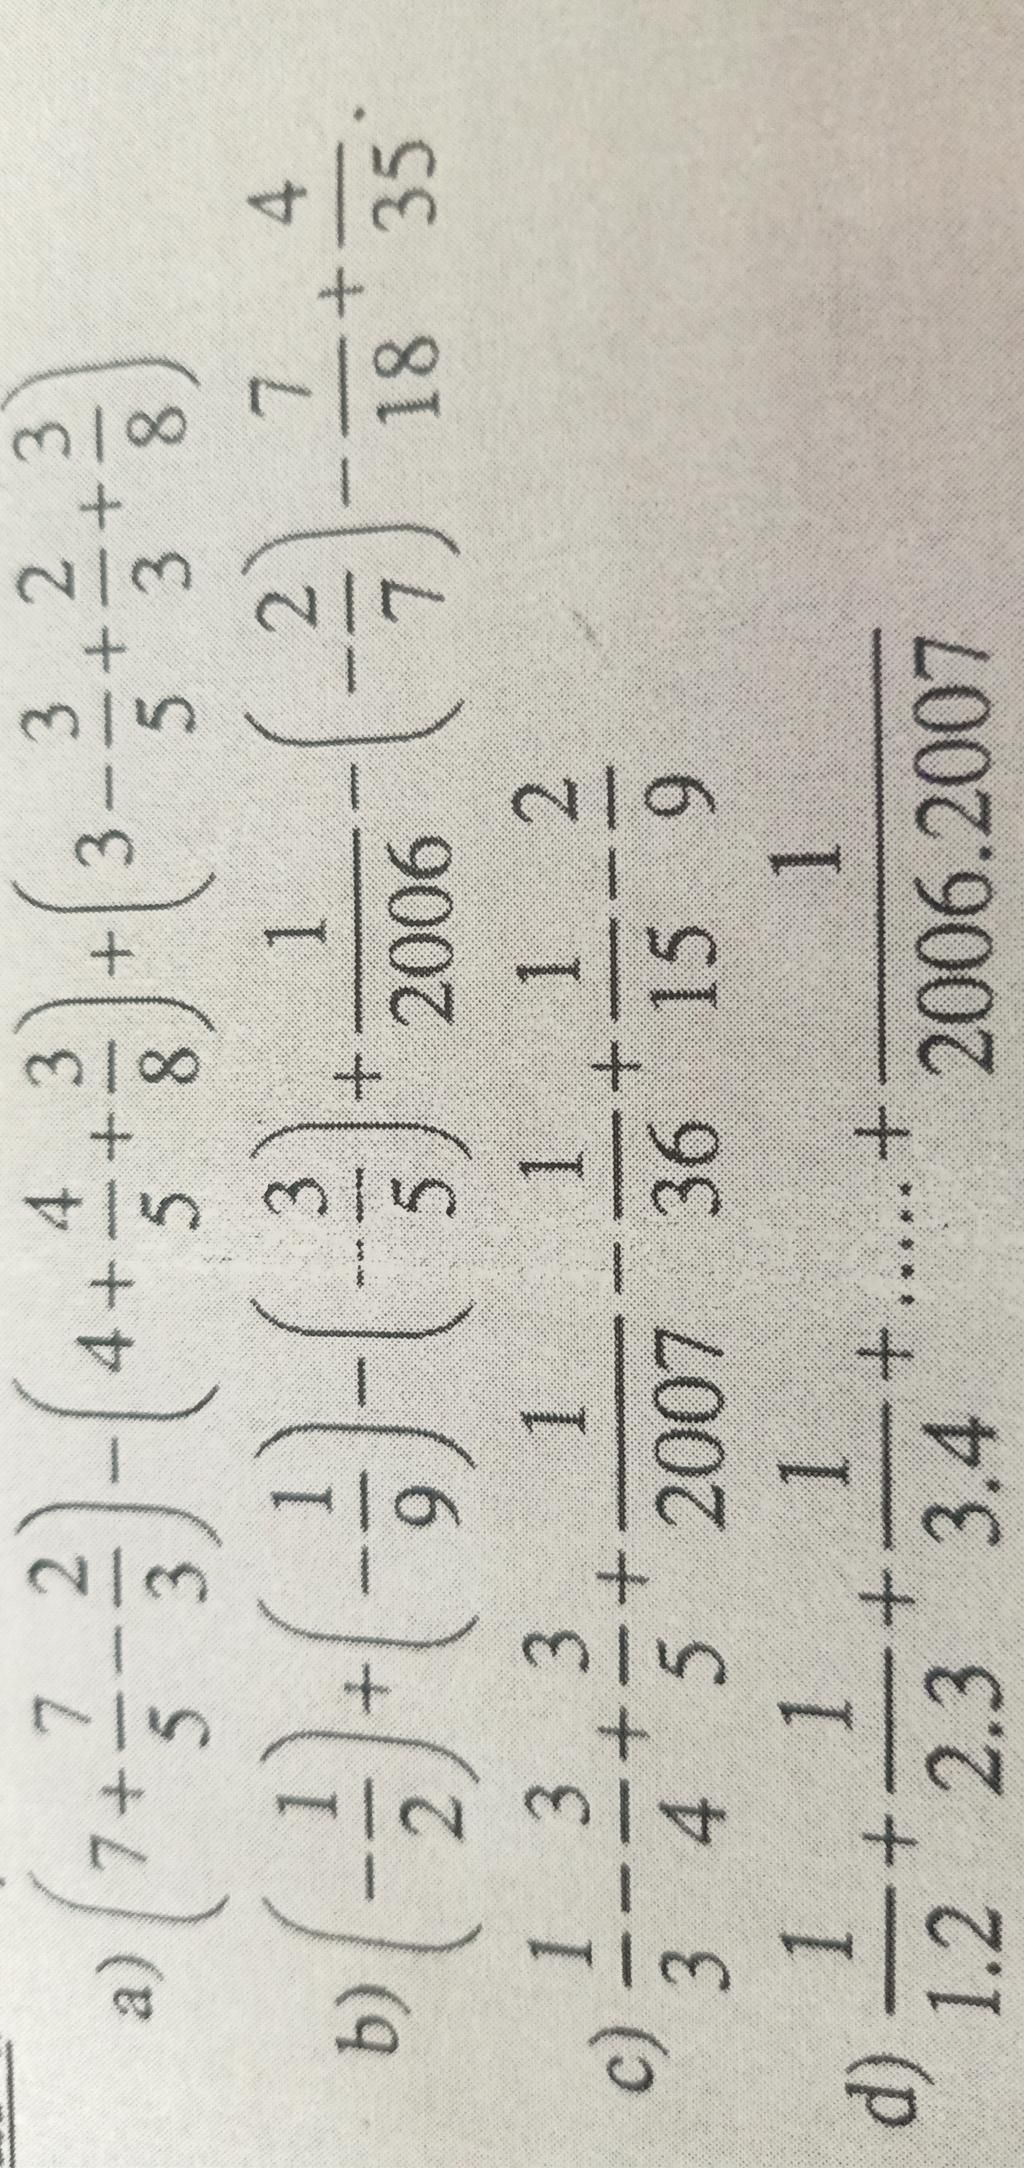 a) (7 + 7/5 − 2/3) − (4 + 4/5 + 3/8) + (3 − 3/5 + 2/3 + 3/8)
b) (− 1/2) + (− 1/9) − (− 3/5) + 1/2006 − (− 2/7) − 7/18 + 4/35.
c) 1/3 − 3/4 + 3/5 + 1/2007 − 1/36 + 1/15 − 2/9
d) 1/1.2 + 1/2.3 + 1/3.4 + ...... + 1/2006.2007